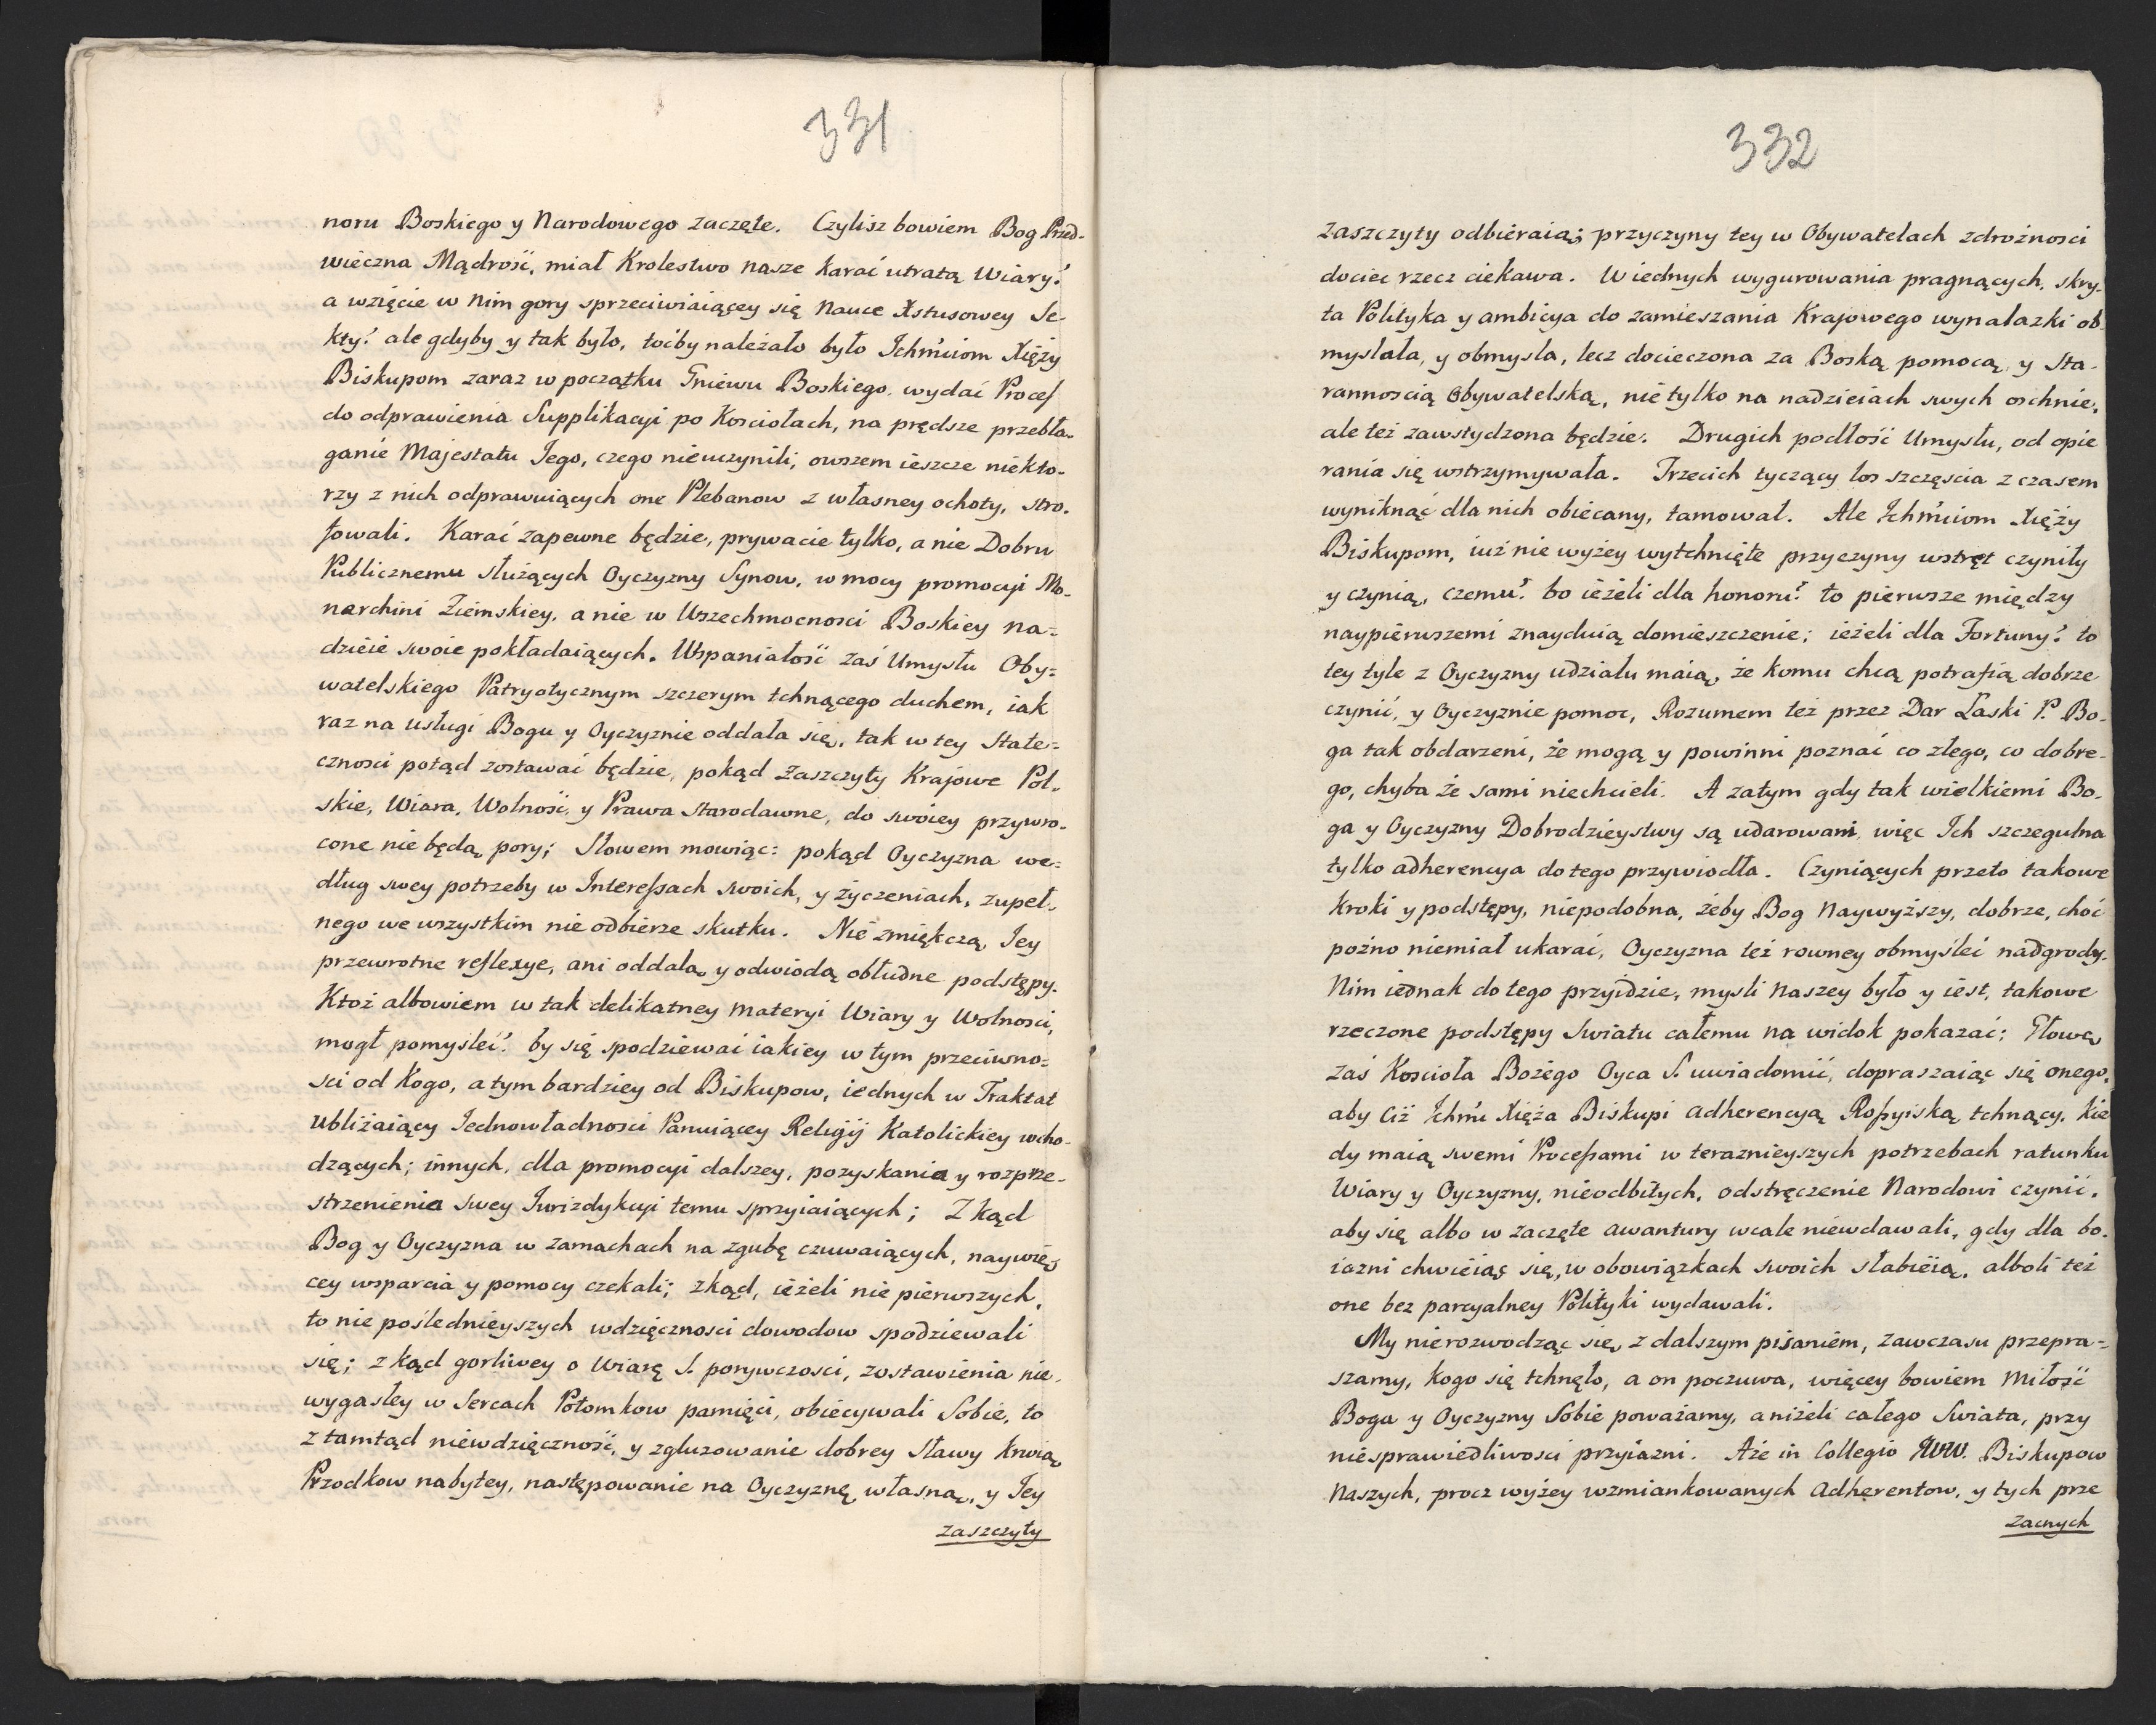 331
noru Boskiego y Narodowego zaczęte. Czylisz bowiem Bog Przed-
wieczna Mądrość, miał Krolestwo nasze karać utratą Wiary?
a wzięcie w nim gory sprzeciwiaiącey się Nauce Xstusowey Se-
kty? ale gdyby y tak było, toćby należało było Ichmciom Xięży
Biskupom zaraz w początku Gniewu Boskiego wydać Proceſ
do odprawienia Supplikacyi po Kosciołach, na prędsze przebła-
ganie Majestatu Jego, czego nieuczynili, owszem ieszcze niekto-
rzy z nich odprawuiących one Plebanow z własney ochoty, stro-
fowali. Karać zapewne będzie, prywacie tylko, a nie Dobru
Publicznemu służących Oyczyzny Synow, w mocy promocyi Mo-
narchini Ziemskiey, a nie w Wszechmocnosci Boskiey na-
dzieie swoie pokładaiących. Wspaniałość zaś Umysłu Oby-
watelskiego Patryotycznym szczerym tchnącego duchem, iak
raz na usługi Bogu y Oyczyznie oddała się, tak w tey State-
cznosci potąd zostawać będzie, pokąd Zaszczyty Krajowe Pol-
skie, Wiara, Wolność, y Prawa starodawne, do swoiey przywro-
cone nie będą pory; Słowem mowiąc: pokąd Oyczyzna we-
dług swey potrzeby w Intereſsach swoich, y życzeniach, zupeł-
nego we wszystkim nie odbierze skutku. Nie zmiękczą Jey
przewrotne reflexye, ani oddalą y odwiodą obłudne podstępy.
Ktoż albowiem w tak delikatney materyi Wiary y Wolnosci,
mogł pomysleć? by się spodziewać iakiey w tym przeciwno-
sci od kogo, a tym bardziey od Biskupow, iednych w Traktat
ubliżaiący Jednowładnosci Panuiącey Religij Katolickiey wcho-
dzących; innych, dla promocyi dalszey, pozyskania y rozprze-
strzenienia swey Jurizdykcyi temu sprzyiaiących; Zkąd
Bog y Oyczyzna w zamachach na zgubę czuwaiących, naywię-
cey wsparcia y pomocy czekali; zkąd, ieżeli nie pierwszych,
to nie pośledniey­szych wdzięcznosci dowodow spodziewali
się; z kąd gorliwey o Wiarę S. porywczosci, zostawienia nie-
wygasłey w Sercach Potomkow pamięci, obiecywali Sobie, to
z tamtąd niewdzięczność, y zgluzowanie dobrey Sławy krwią
Przodkow nabytey, następowanie na Oyczyznę własną, y Jey
zaszczyty
332
zaszczyty odbieraią; przyczyny tey w Obywatelach zdrożnosci
dociec rzecz ciekawa. W iednych wygurowania pragnących, skry-
ta Polityka y ambicya do zamieszania Krajowego wynalazki ob-
myslała, y obmysla, lecz docieczona za Boską pomocą y Sta-
rannoscią Obywatelską, nie tylko na nadzieiach swych oschnie,
ale też zawstydzona będzie. Drugich podłość Umysłu, od opie
rania się wstrzymywała. Trzecich tyczący los szczęscia z czasem
wyniknąć dla nich obiecany, tamował. Ale Ichmciom Xięży
Biskupom, iuż nie wyżey wytchnięte przyczyny wstręt czyniły
y czynią, czemu? bo ieżeli dla honoru? to pierwsze między
naypierwszemi znayduią domieszczenie; ieżeli dla Fortuny? to
tey tyle z Oyczyzny udziału maią, że komu chcą potrafią dobrze
czynić, y Oyczyznie pomoc, Rozumem też przez Dar Łaski P. Bo-
ga tak obdarzeni, że mogą y powinni poznać co złego, co dobre-
go, chyba że sami niechcieli. A zatym gdy tak wielkiemi Bo-
ga y Oyczyzny Dobrodzieystwy są udarowani, więc Ich szczegulna
tylko adherencya do tego przywiodła. Czyniących przeto takowe
kroki y podstępy, niepodobna, żeby Bog Naywyższy, dobrze, choć
pozno niemiał ukarać, Oyczyzna też rowney obmyśleć nadgrody.
Nim iednak do tego przyidzie, mysli naszey było y iest, takowe
rzeczone podstępy Swiatu całemu na widok pokazać; Głowę
zaś Kościoła Bożego Oyca S. uwiadomić, dopraszaiąc się onego,
aby Ciż Ichmć Xięża Biskupi adherencyą Roſsyiską tchnący, kie
dy maią swemi Proceſsami w teraznieyszych potrzebach ratunku
Wiary y Oyczyzny, nieodbitych, odstręczenie Narodowi czynić,
aby się albo w zaczęte awantury wcale niewdawali, gdy dla bo-
iazni chwieiąc się, w obowiązkach swoich słabieią, alboli też
one bez parcyalney Polityki wydawali.
My nierozwodząc się z dalszym pisaniem, zawczasu przepra-
szamy, kogo się tchnęło, a on poczuwa, więcey bowiem Miłość
Boga y Oyczyzny Sobie poważamy, a niżeli całego Swiata, przy
niesprawiedliwosci przyiazni. Aże in Collegio JWW. Biskupow
Naszych, procz wyżey wzmiankowanych Adherentow, y tych prze
zacnych